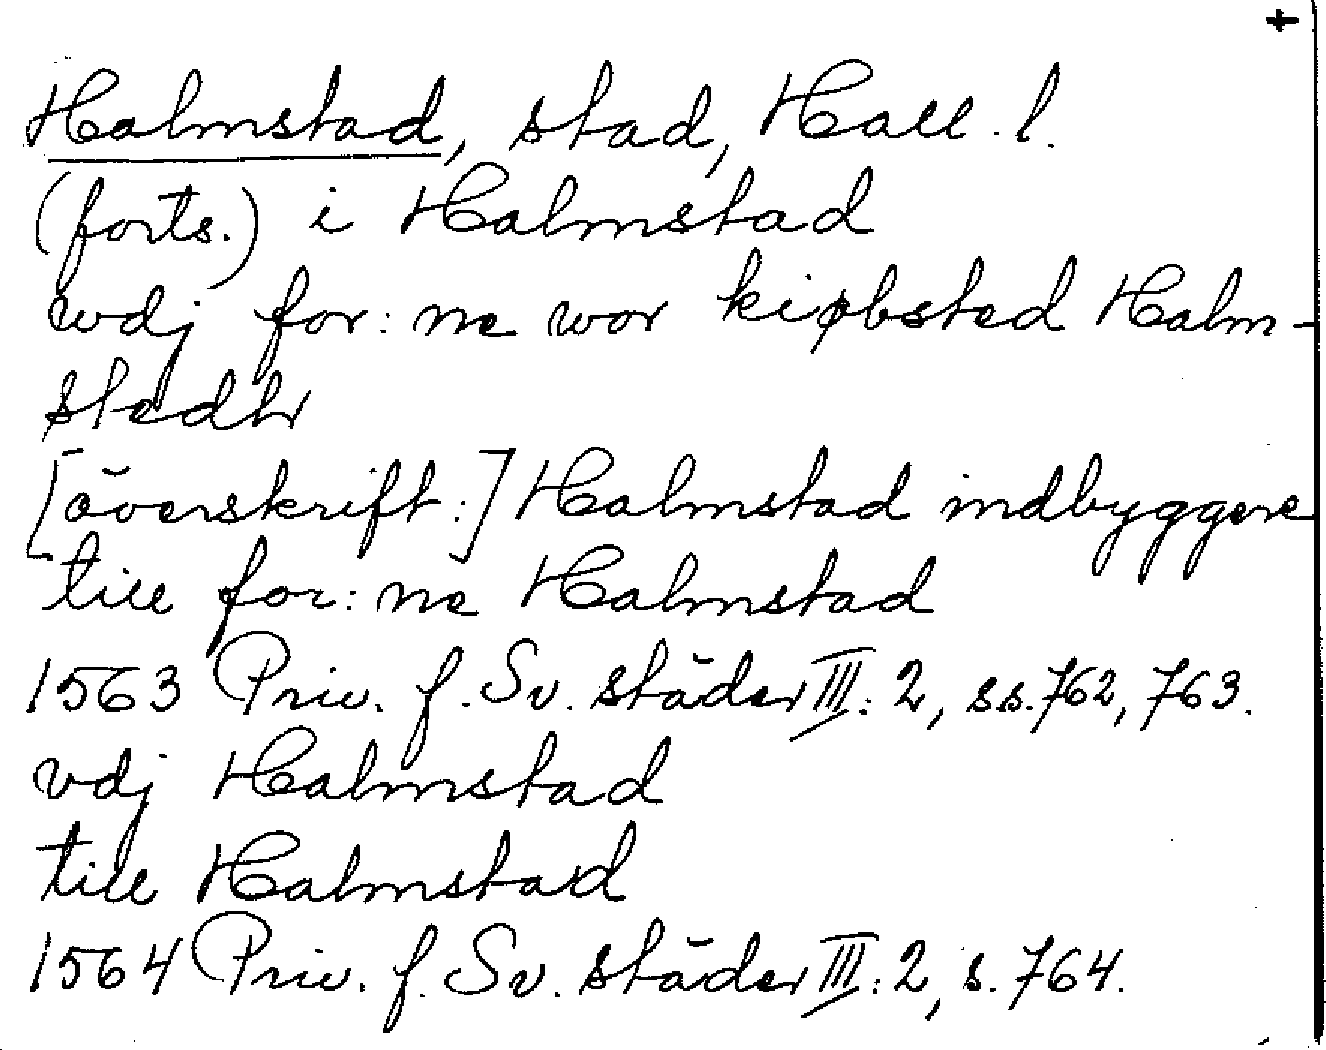 +
Halmstad, stad, Hall. l.
(forts.) i Halmstad
wdj for: ne wor kiøbsted Halm-
stedhr
[överskrift:] Halmstad indbyggere
till for: ne Halmstad
1563 Priv. f. Sv. städer III: 2, ss. 762, 763.
vdj Halmstad
till Halmstad
1564 Priv. f. Sv. städer III: 2, s. 764.